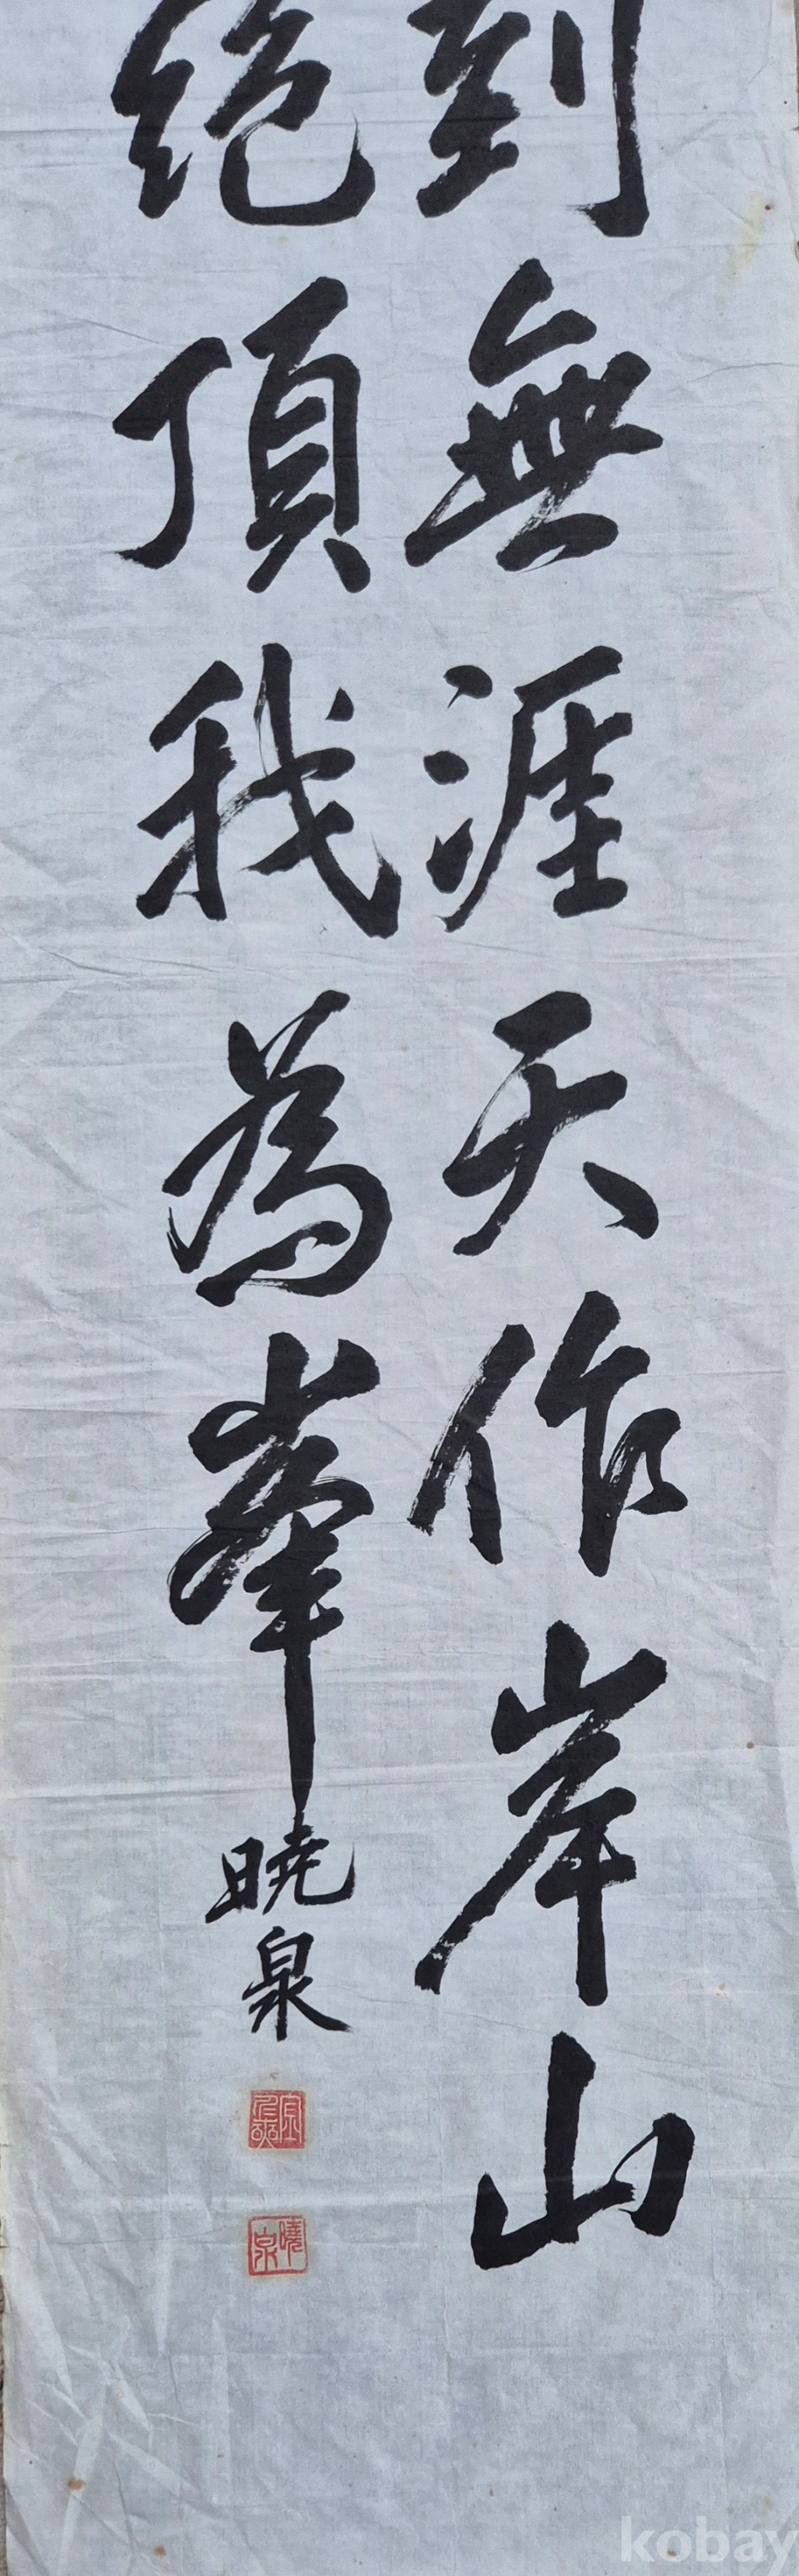 到無涯天作岸山
絶頂我為峯
暁泉
暁泉
kobay